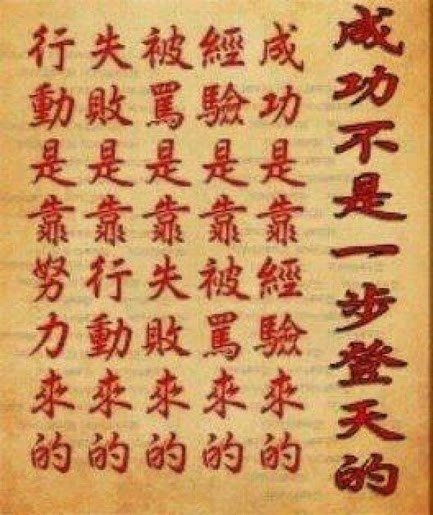 成功不是一步登天的
成功是靠經驗來的
經驗是靠被罵來的
被罵是靠失敗來的
失敗是靠行動來的
行動是靠努力來的